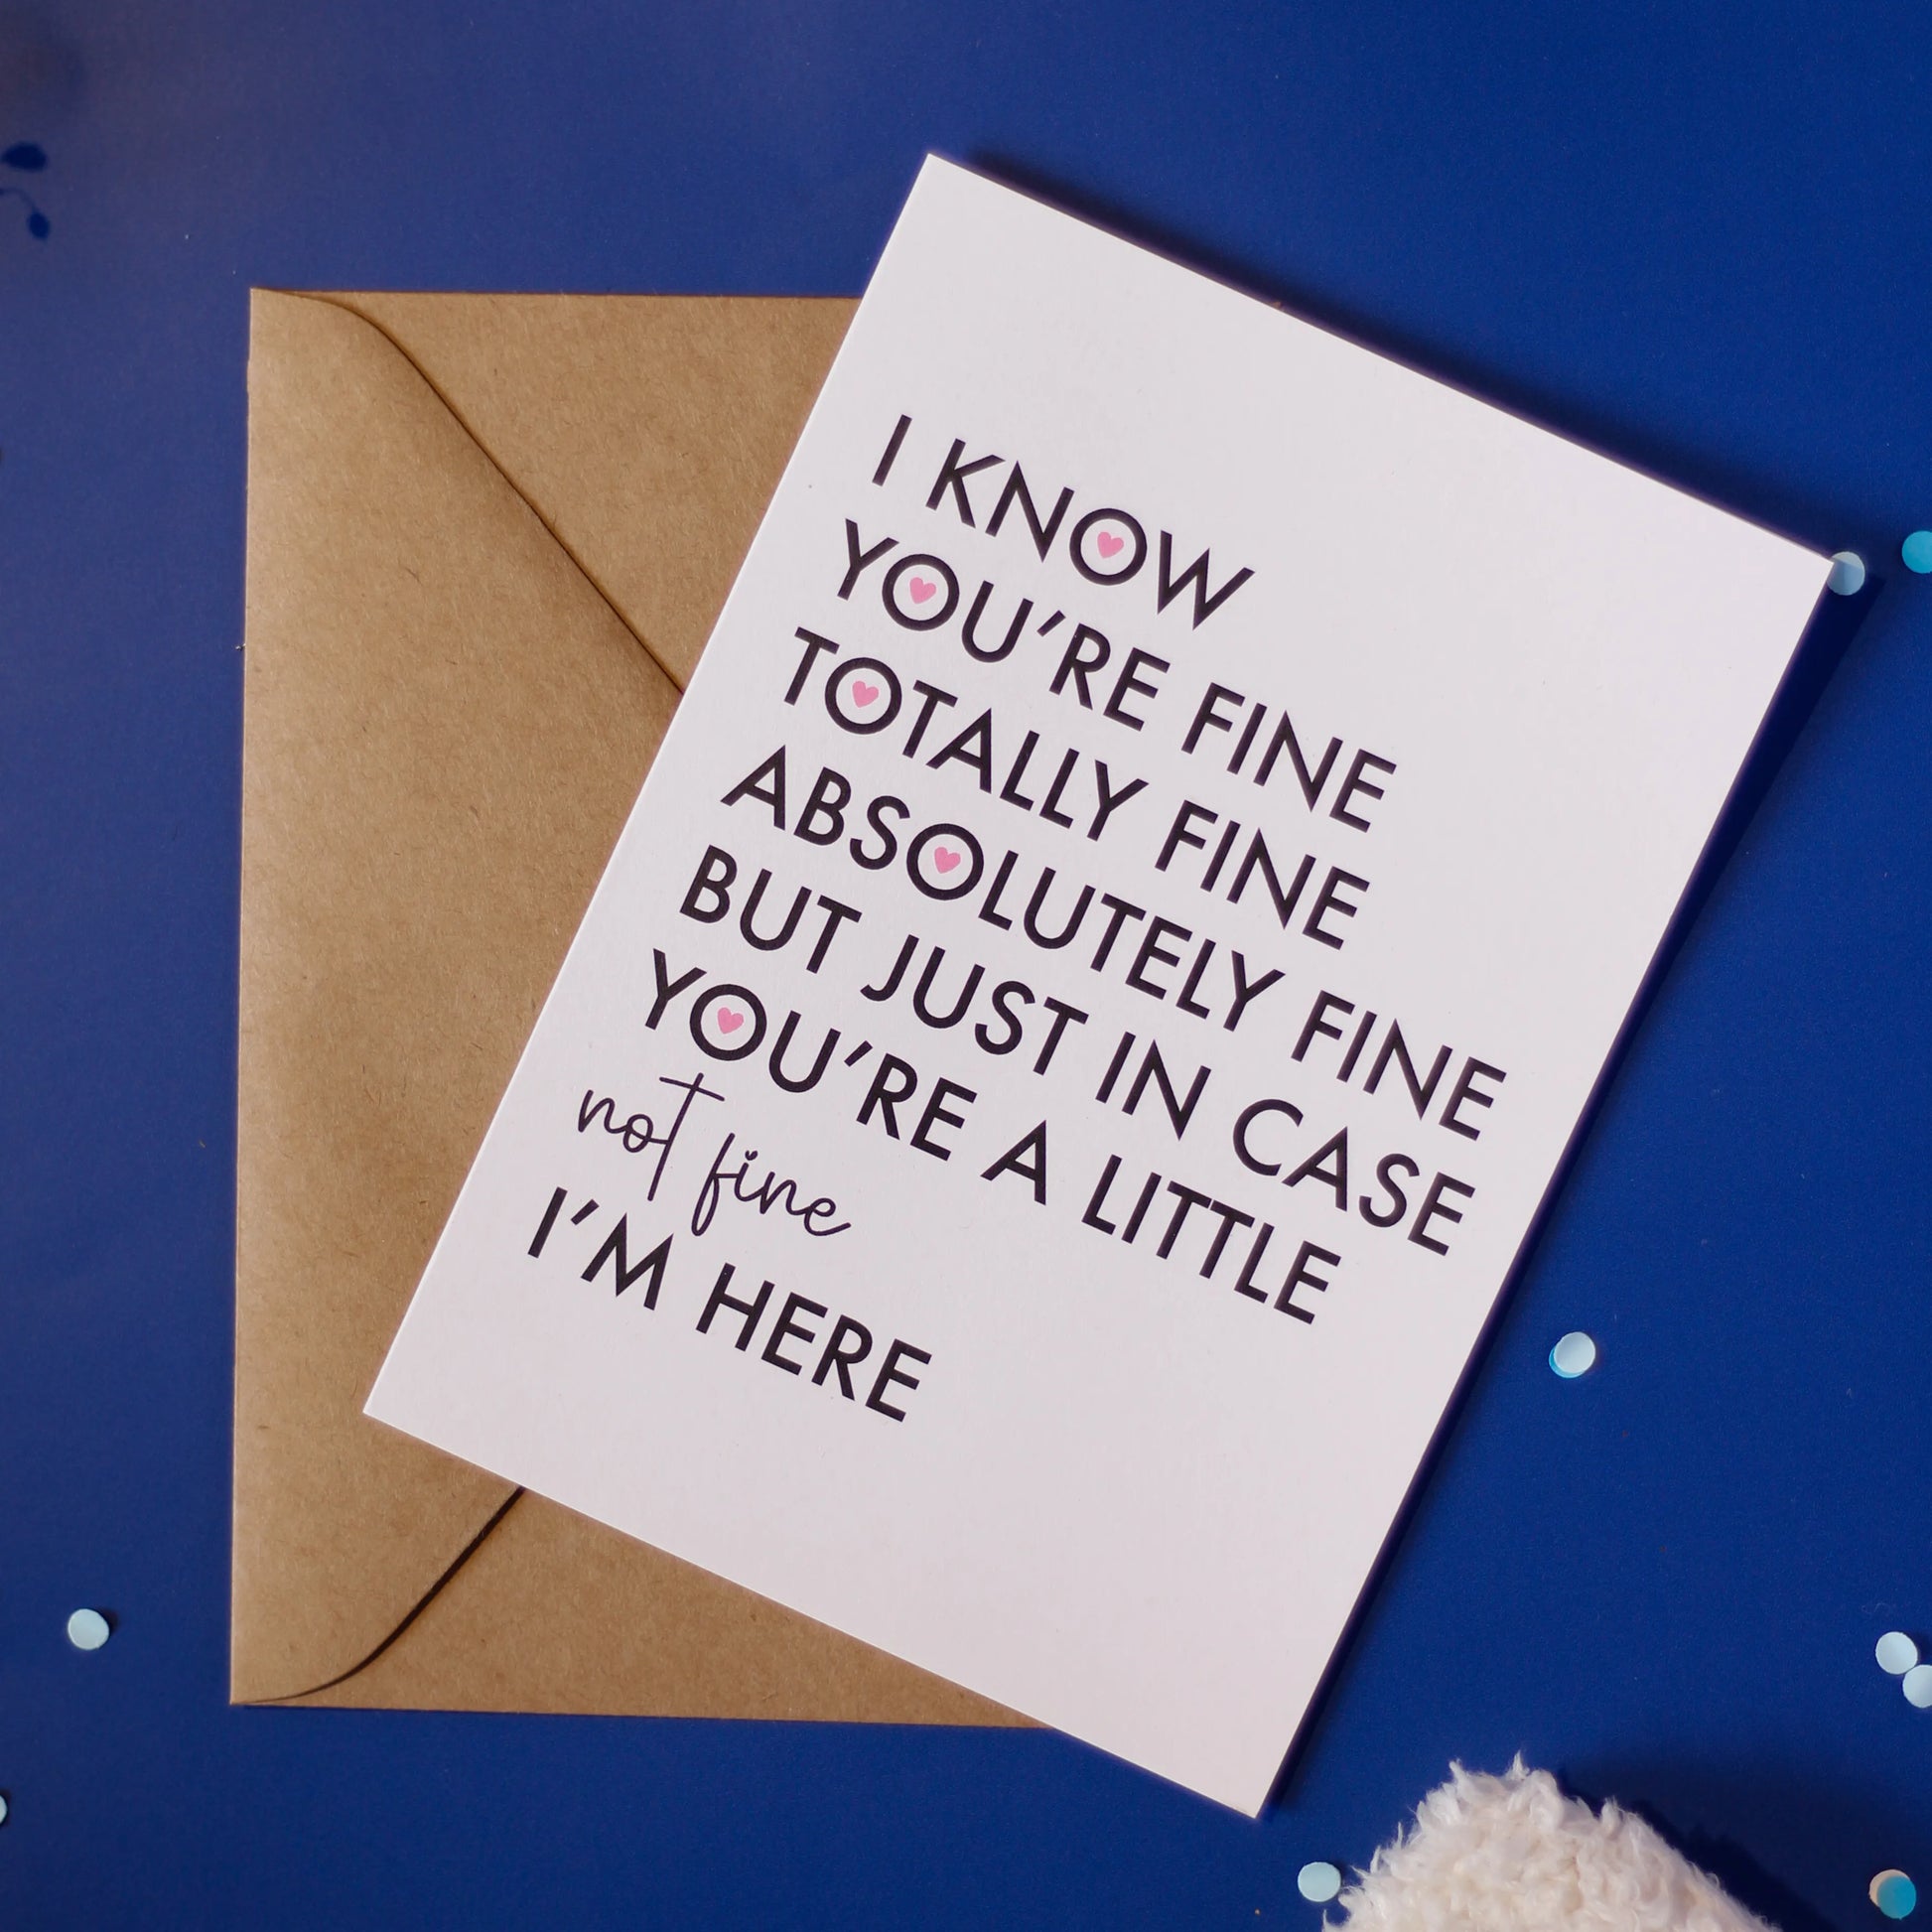 I KNOW
YOU'RE FINE
TOTALLY FINE
ABSOLUTELY FINE
BUT JUST IN CASE
YOU'RE A LITTLE
not fine
I'M HERE